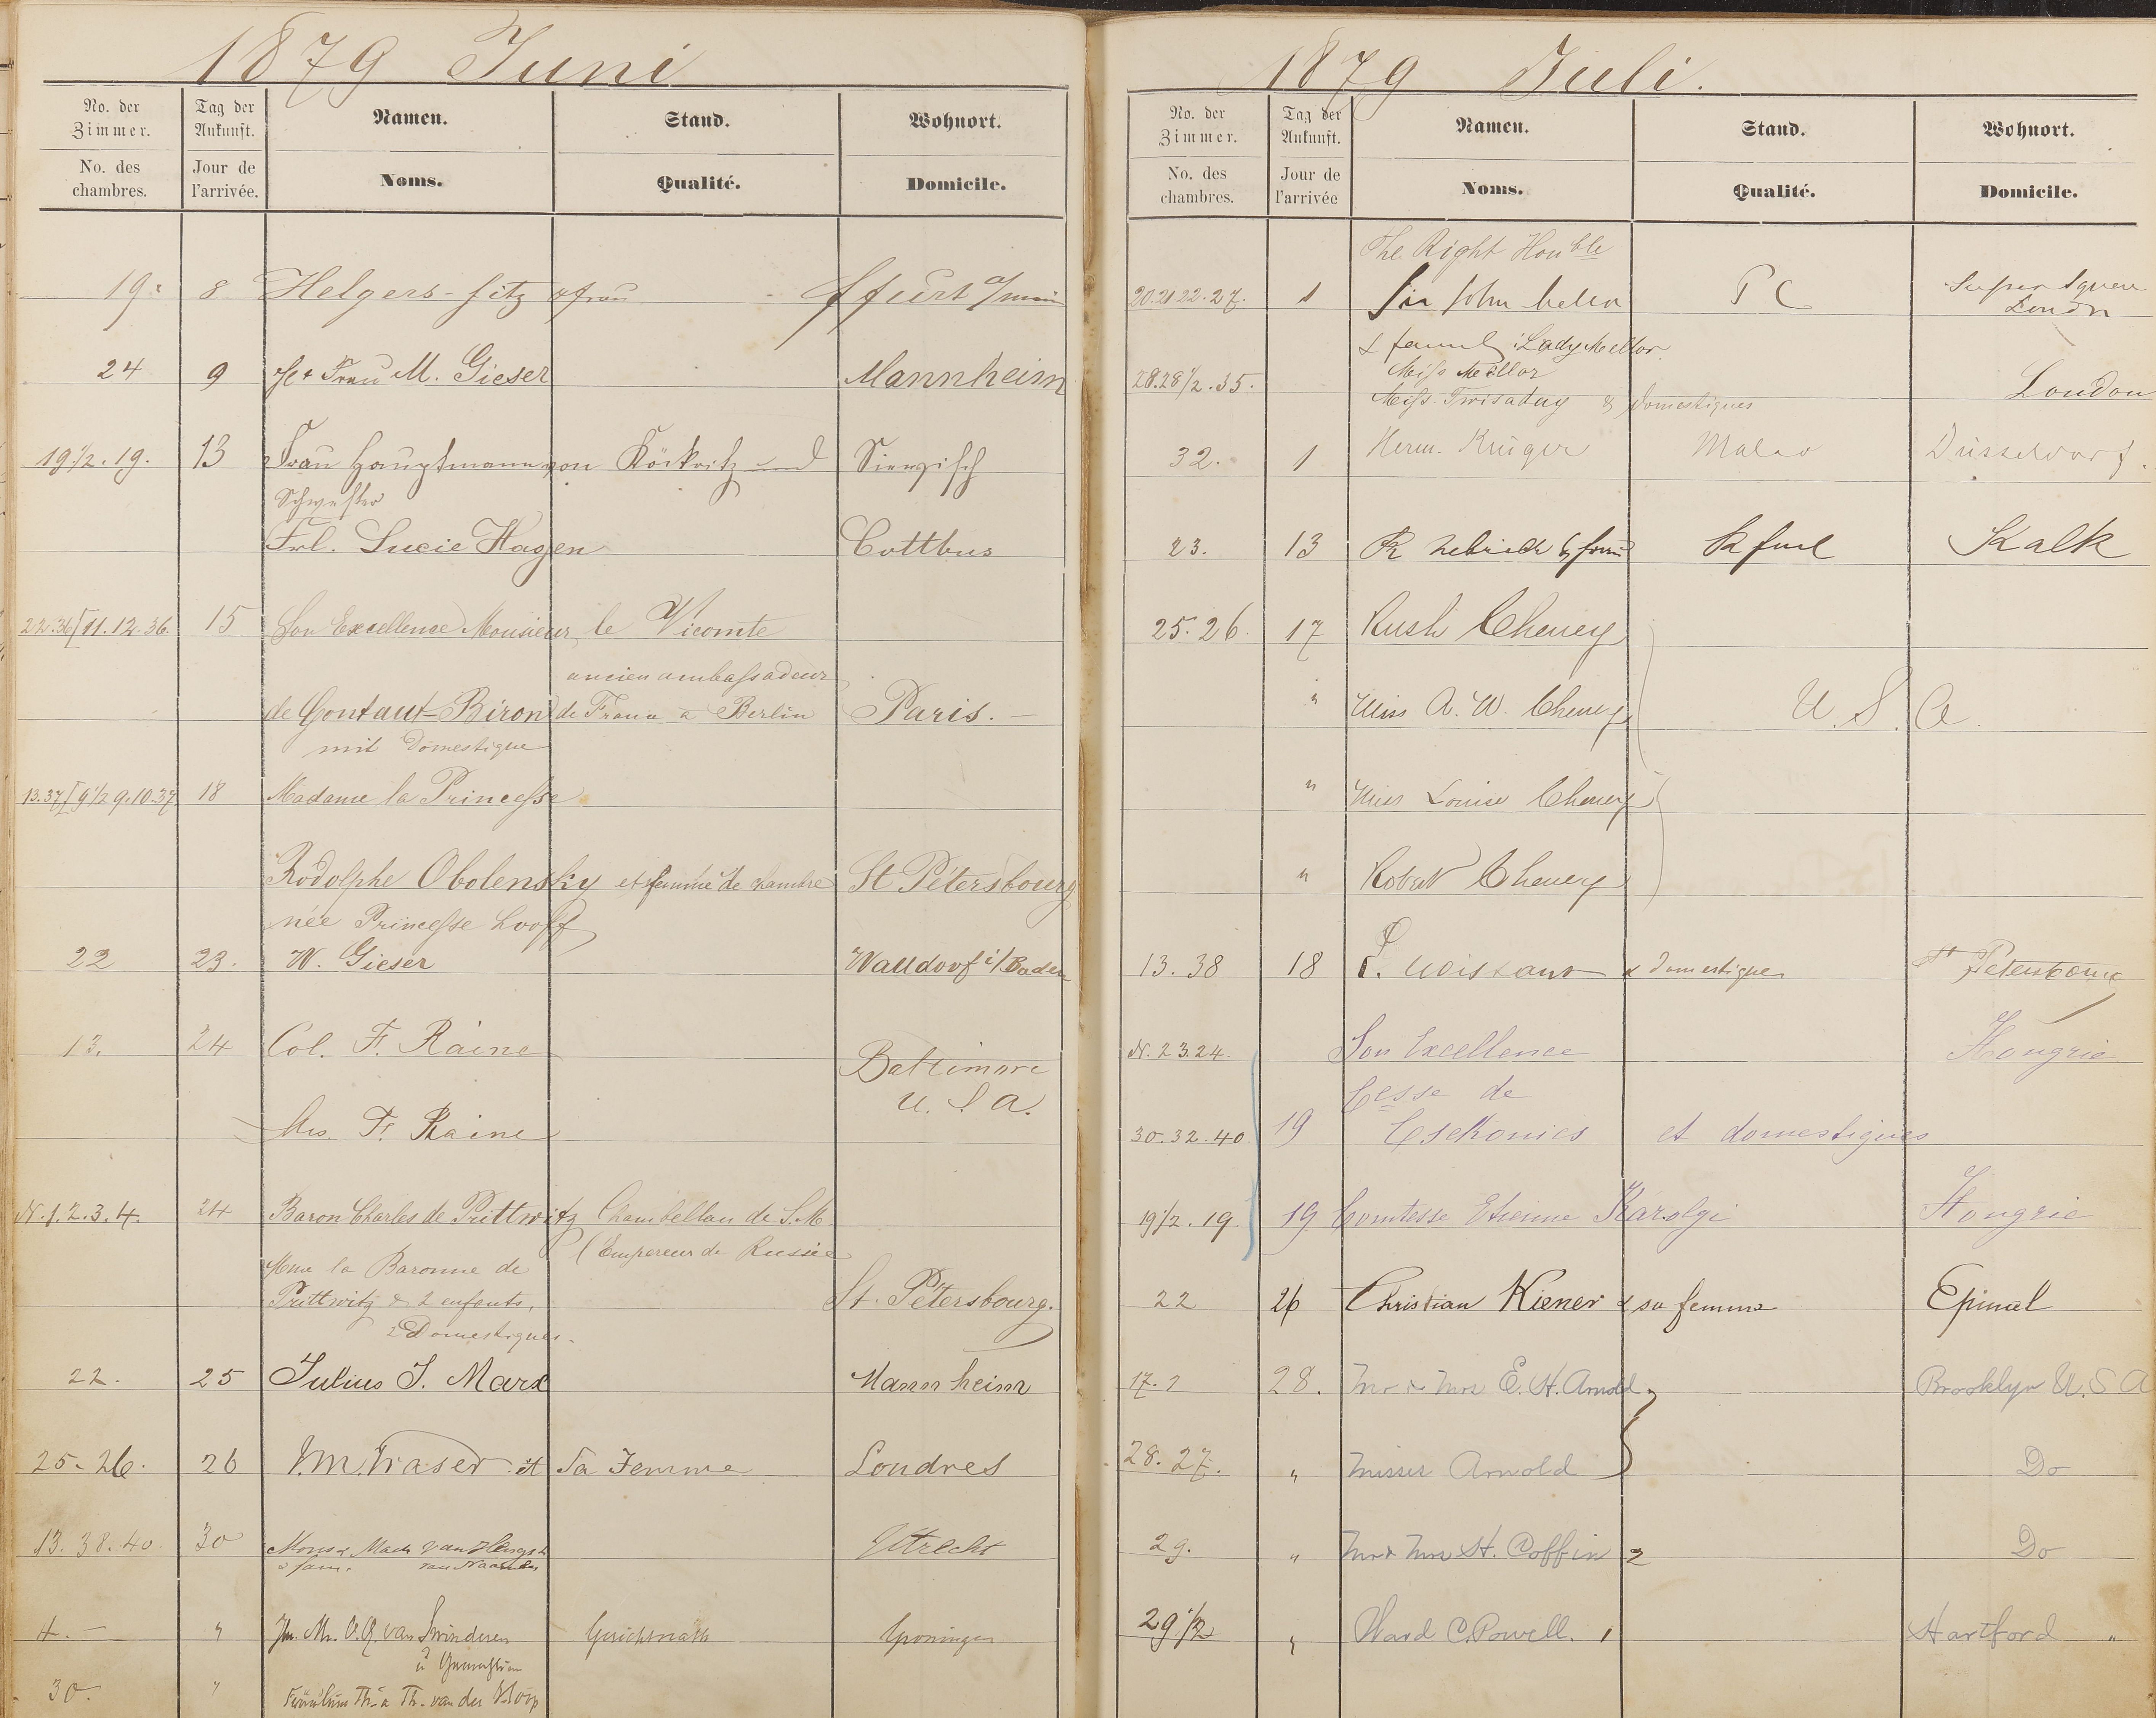 1879 Juni
No. der Zimmer. Tag der Ankunft. Namen. Stand. Wohnort.
No. des chambres. Jour de l'arrivée. Noms. Qualité. Domicile.
19 8 Helgers-Fitz & frau ffurt a/main
24 9 Frau M. Gieser Mannheim
19 1/2. 19. 13 Frau Hauptmann von Köckritz und
Schwester
Frl. Lucie Hagen Cottbus
22.36 [11.12.36. 15 Son Excellence Monsieur le Vicomte
ancien ambassadeur
de Gontaut-Biron de France a Berlin Paris.
mit Domestique
13.37 [9 1/2 9.10.37 18 Madame la Princesse
Rodolphe Obolensky et femme de chambre St Pétersbourg
née Princesse
22 23. W. Gieser Walldorf i/Baden
13. 24 Col. F. Raine Baltimore
U. S. A.
Mrs. F. Raine
N. 1. 2. 3. 4. 24 Baron Charles de Prittwitz Chambellan de S. M.
l'Empereur de Russie
Mme la Baronne de
Prittwitz & 2 enfants, St. Pétersbourg.
2 Domestiques.
22. 25 Julius J. Marx Mannheim
25-26. 26 Fraser et Sa Femme Londres
13. 38. 40. 30 Mons & Mad van Hengst Utrecht
& fam. van Naamen
4. — " Jhr. Mr. O. Q. van Swinderen Gerichtsrath Groningen
u Gemahlin
30. " Fräulein Th. a Th. van der
1879 Juli.
No. der Zimmer. Tag der Ankunft. Namen. Stand. Wohnort.
No. des chambres. Jour de l'arrivée Noms. Qualité. Domicile.
The Right Honble
20.21 22.27. 1 Sir John Mellor P C
London
& family Lady Mellor
28.28 1/2. 35. Miss Mellor London
Miss & domestiques
32. 1 Herm. Krüger Maler Düsseldorf.
23. 13 frau Kalk
25. 26. 17 Rush Cheney
" Miss A. W. Cheney U. S. A.
" Miss Louise Cheney
" Robert Cheney
13. 38 18 & domestique St Petersbourg
N. 23.24. Son Excellence Hongrie
Csse de
30. 32. 40 19 Csekonics et domestiques
19 1/2. 19. 19 Comtesse Etienne Károlyi Hongrie
22 26 Christian Kiener & sa femme Epinal
17. 1 28. Mr & Mrs E. H. Arnold Brooklyn U. S A
28. 27. " Misses Arnold Do
29. " Mr & Mrs H. Coffin 2 Do
29 1/2 " Ward C. Powell. 1 Hartford "